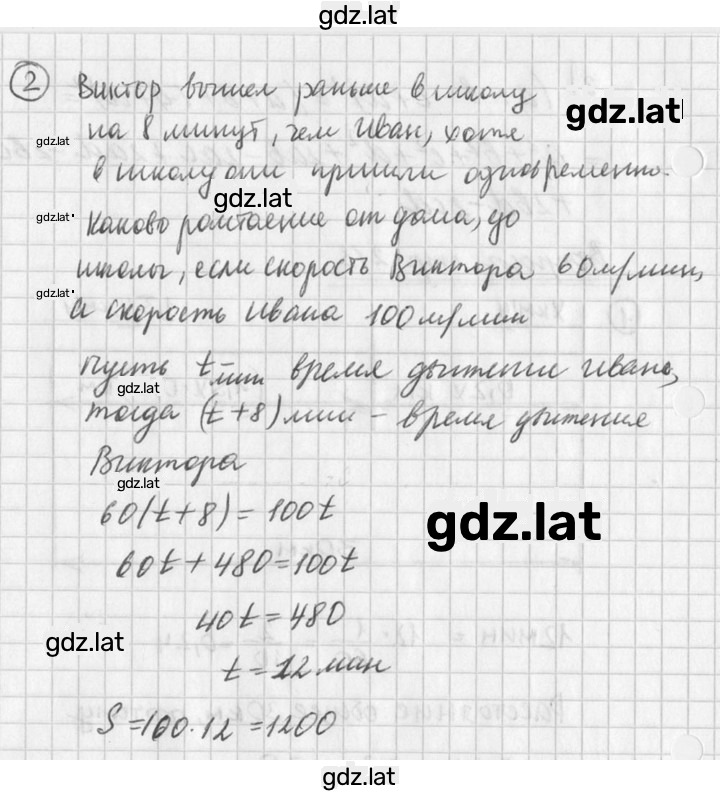 gdz.lat
2 Виктор вышел раньше в школу
gdz.lat
на 8 минут, чем Иван, хотя
gdz.lat
в школу они пришли одновременно.
gdz.lat
gdz.lat
Каково расстояние от дома, до
школы, если скорость Виктора 60м/мин,
gdz.lat
а скорость Ивана 100м/мин
Пусть t мин – время движение Ивана,
gdz.lat
тогда (t+8) мин – время движения
Виктора
gdz.lat
60(t+8) = 100t
gdz.lat
60t + 480 = 100t
40t = 480
gdz.lat
t = 12 мин
S = 100·12 = 1200
gdz.lat